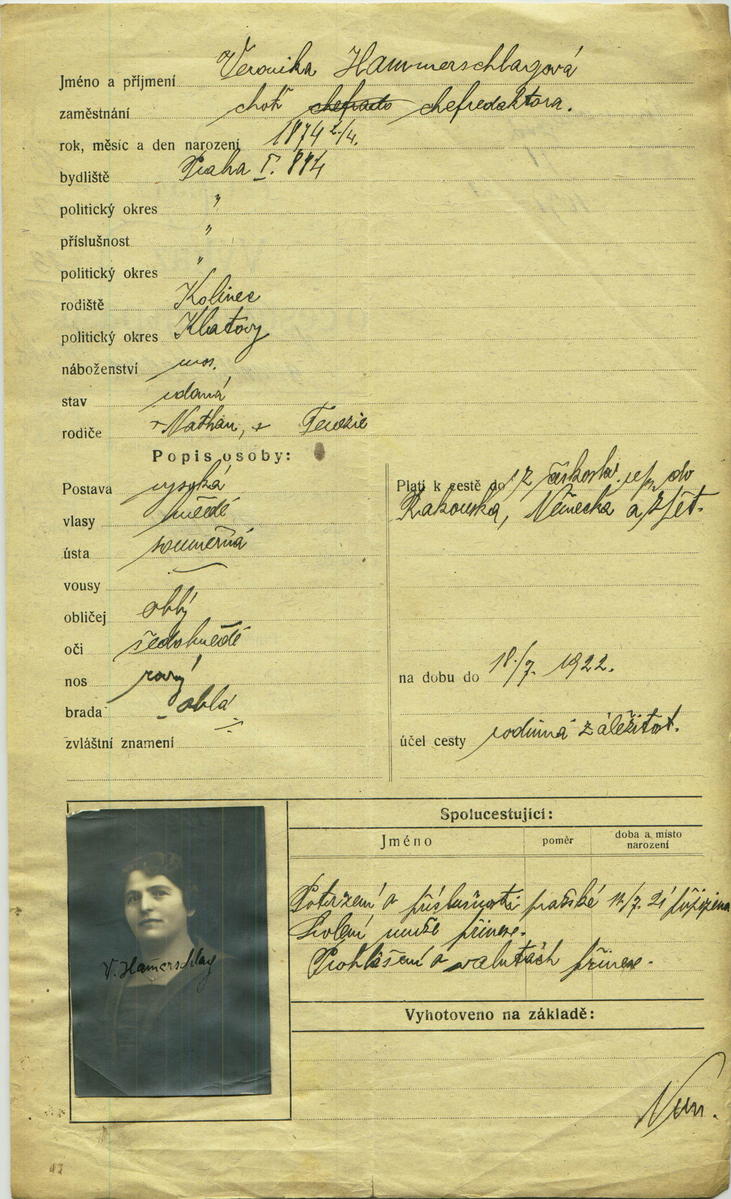 Jméno a příjmení Veronika Hammerschlagová
zaměstnání choť chefredaktora.
rok, měsíc a den narození 1874 2/4.
bydliště Praha I. 884
politický okres "
příslušnost "
politický okres "
rodiště Kolinec
politický okres Klatovy
náboženství mos.
stav vdaná
rodiče Nathan, Terezie
Popis osoby:
Postava vysoká
vlasy hnědé
ústa souměrná
vousy
obličej oblý
oči šedohnědé
nos rovný
brada oblá
zvláštní znamení
Platí k cestě do z českoslov. rep. do
Rakouska, Německa a zpět.
na dobu do 18./7. 1922.
účel cesty rodinná záležitost.
V. Hamerschlag
Spolucestující:
Jméno poměr doba a místo narození
Potvrzení o příslušnosti pražské 12/7. 21 připojeno
Svolení muže přinese.
Prohlášení o valutách přinese.
Vyhotoveno na základě: